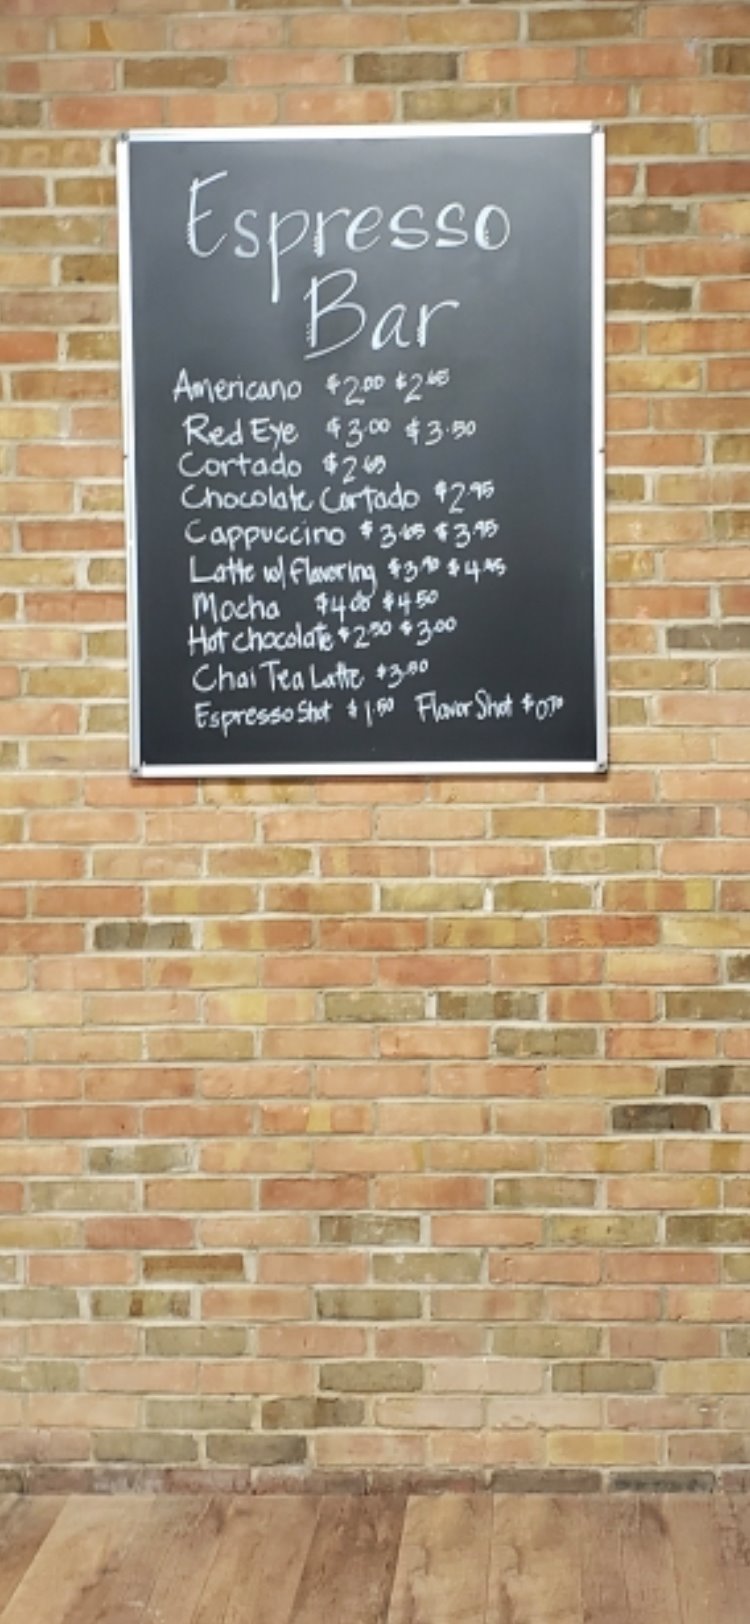 Espresso
Bar
Americano $2.00 $2.65
Red Eye $3.00 $3.50
Cortado $2.65
Chocolate Cortado $2.95
Cappuccino $3.65 $3.95
Latte w/ Flavoring $3.90 $4.45
Mocha $4.00 $4.50
Hot chocolate $2.50 $3.00
Chai Tea Latte $3.50
Espresso Shot $1.50 Flavor Shot $0.70